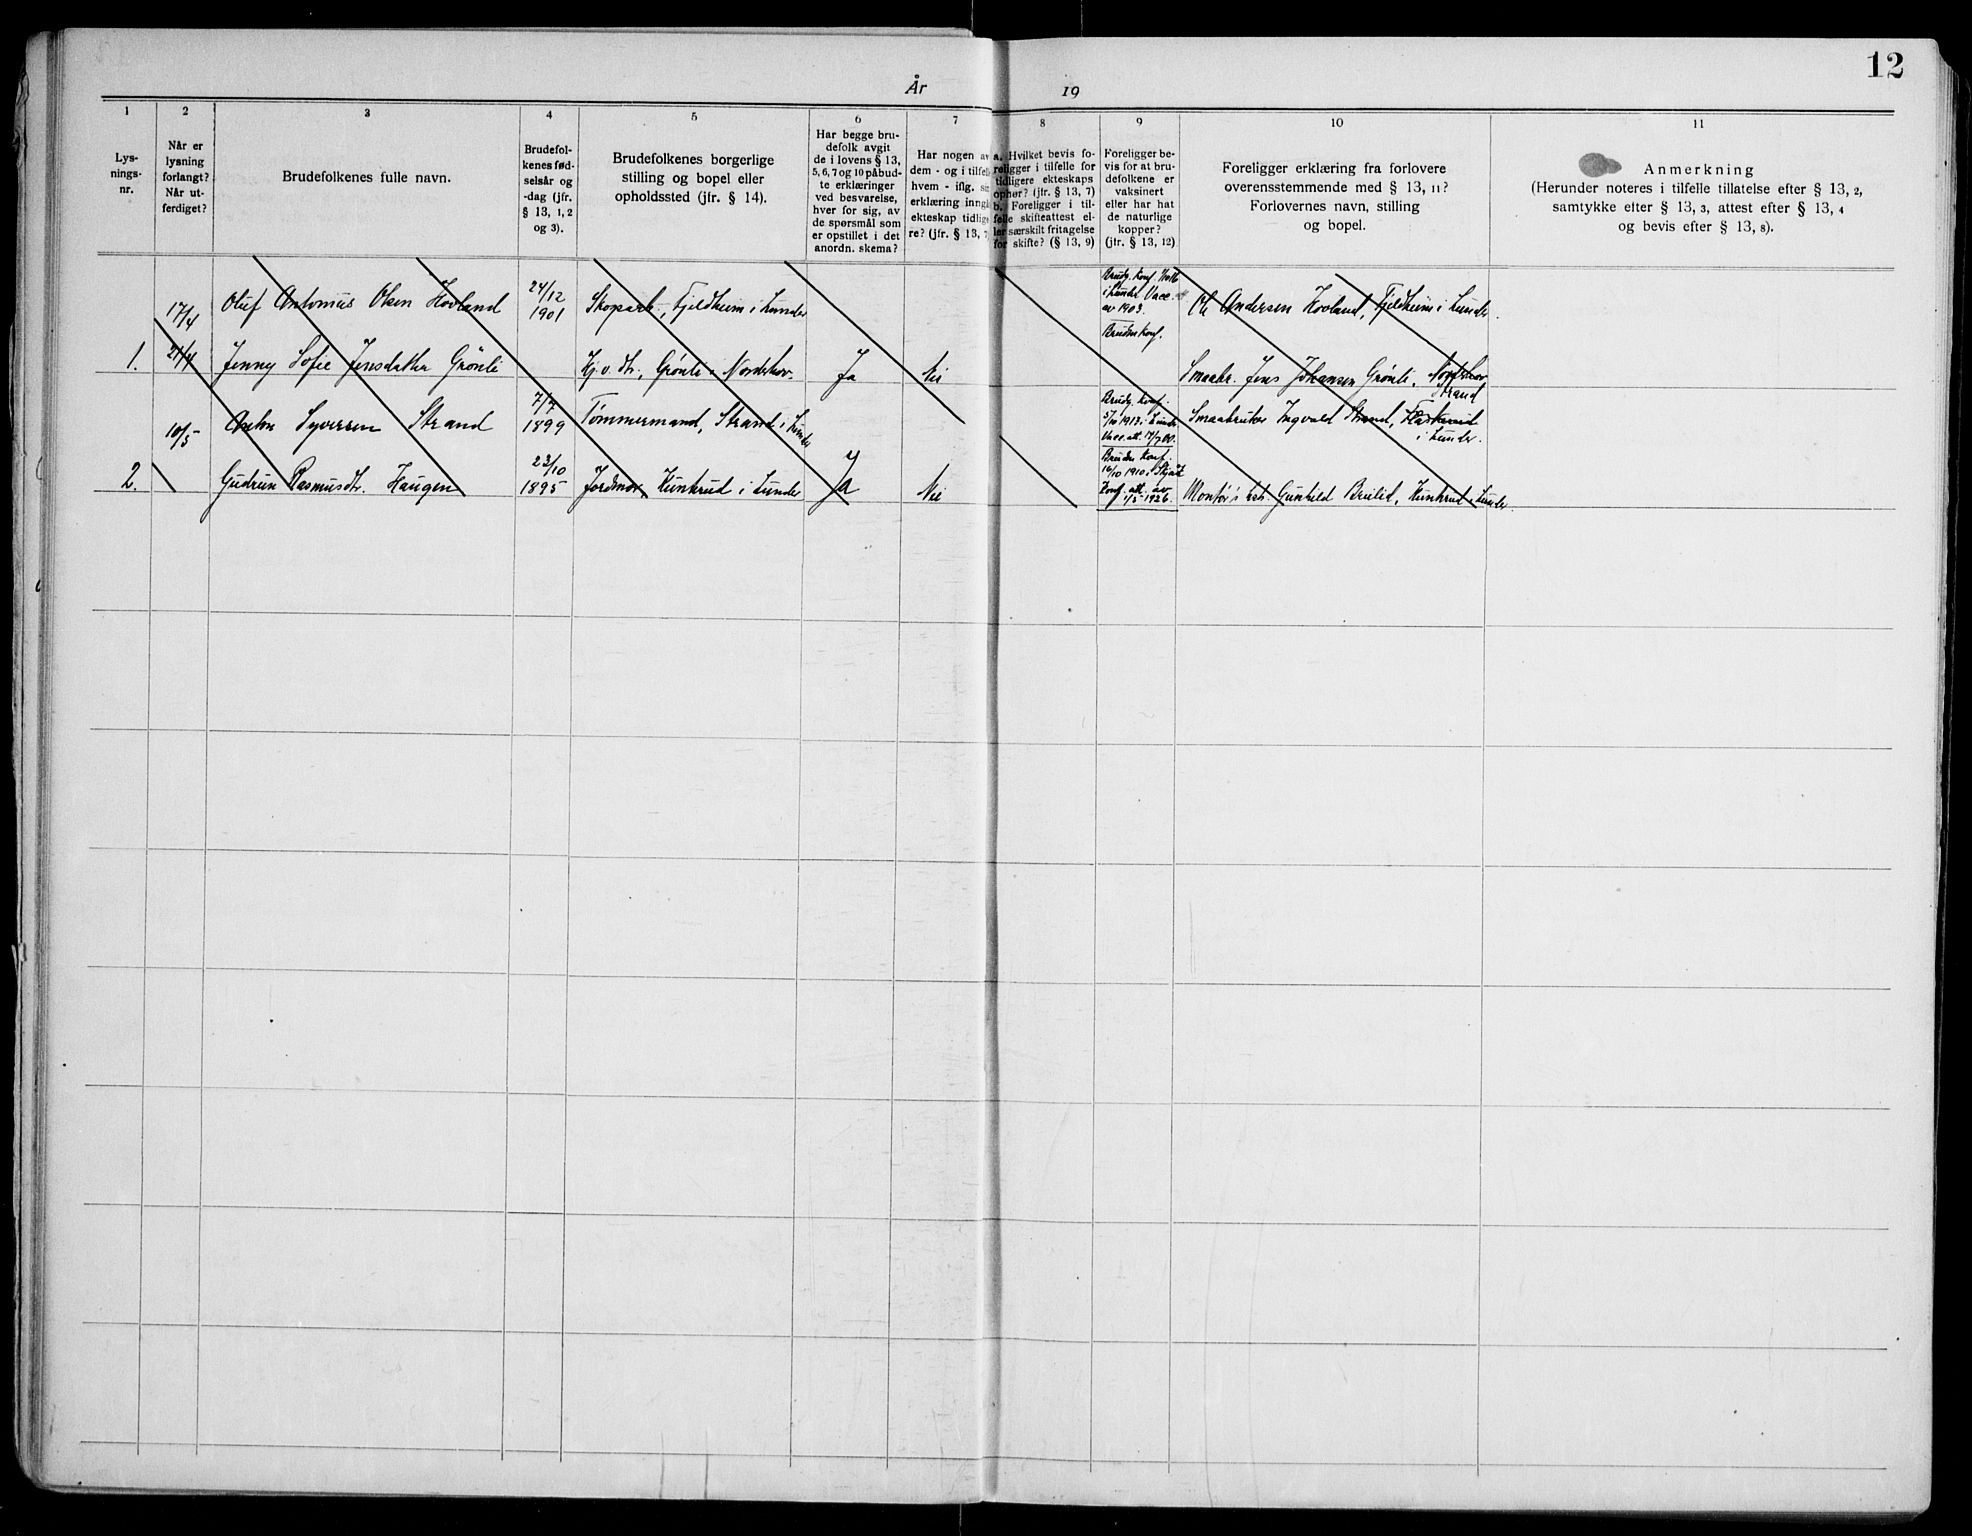 12
År
19
1
2
3
4
5
6
7
8
9
10
11
Lys-
nings-
nr.
Når er
lysning
forlangt?
Når ut-
ferdiget?
Brudefolkenes fulle navn.
Brudefol-
kenes fød-
selsår og
-dag (jfr.
§ 13, 1, 2
og 3).
Brudefolkenes borgerlige
stilling og bopel eller
opholdssted (jfr. § 14).
Har begge bru-
defolk avgit
de i lovens § 13,
5, 6, 7 og 10 påbud-
te erklæringer
ved besvarelse,
hver for sig, av
de spørsmål som
er opstillet i det
anordn. skema?
Har nogen av
dem - og i tilfelle
hvem - iflg.
erklæring inngå
ekteskap tidlige
re? (jfr. § 13, 7
a. Hvilket bevis fo-
religger i tilfelle for
tidligere ekteskaps
ophør? (jfr. § 13, 7)
b. Foreligger i til-
felle skifteattest el-
ler særskilt fritagelse
for skifte? (§ 13, 9)
Foreligger be-
vis for at bru-
defolkene er
vaksinert
eller har hat
de naturlige
kopper?
(jfr. § 13, 12)
Foreligger erklæring fra forlovere
overensstemmende med § 13, 11?
Forlovernes navn, stilling
og bopel.
Anmerkning
(Herunder noteres i tilfelle tillatelse efter § 13, 2,
samtykke efter § 13, 3, attest efter § 13, 4
og bevis efter § 13, 8).
17/4
Oluf Antonius Olsen Hovland
24/12
1901
Skoparb., Fjeldheim i Lunder
Brudg. konf.
i Lunder Vacc.
av 1903.
Bruden konf.
Andersen Hovland, Fjeldheim i Lunder.
1.
21/4
Jenny Sofie Jensdatter Grönli
Hj.v. dtr., Grönli i Norderhov.
Ja
Nei
Smaabr. Jens Johansen Grönli, Norderhov
10/5
Anton Syversen Strand
7/7
1899
Tömmermand, Strand i Lunder
Brudg. konf.
5/10 1913 i Lunder
Vacc. att. 17/7 00.
Strand
Smaabruker Ingvald Strand,
i Lunder.
2.
Gudrun Rasmusdtr. Haugen
23/10
1895
Jordmor, Kunkrud i Lunder
Ja
Nei
Bruden konf.
16/10 1910 i Skjåk
Konf. att. av
1/5 1926.
Montør's hstr. Gunhild Breilid, Kunkrud i Lunder.